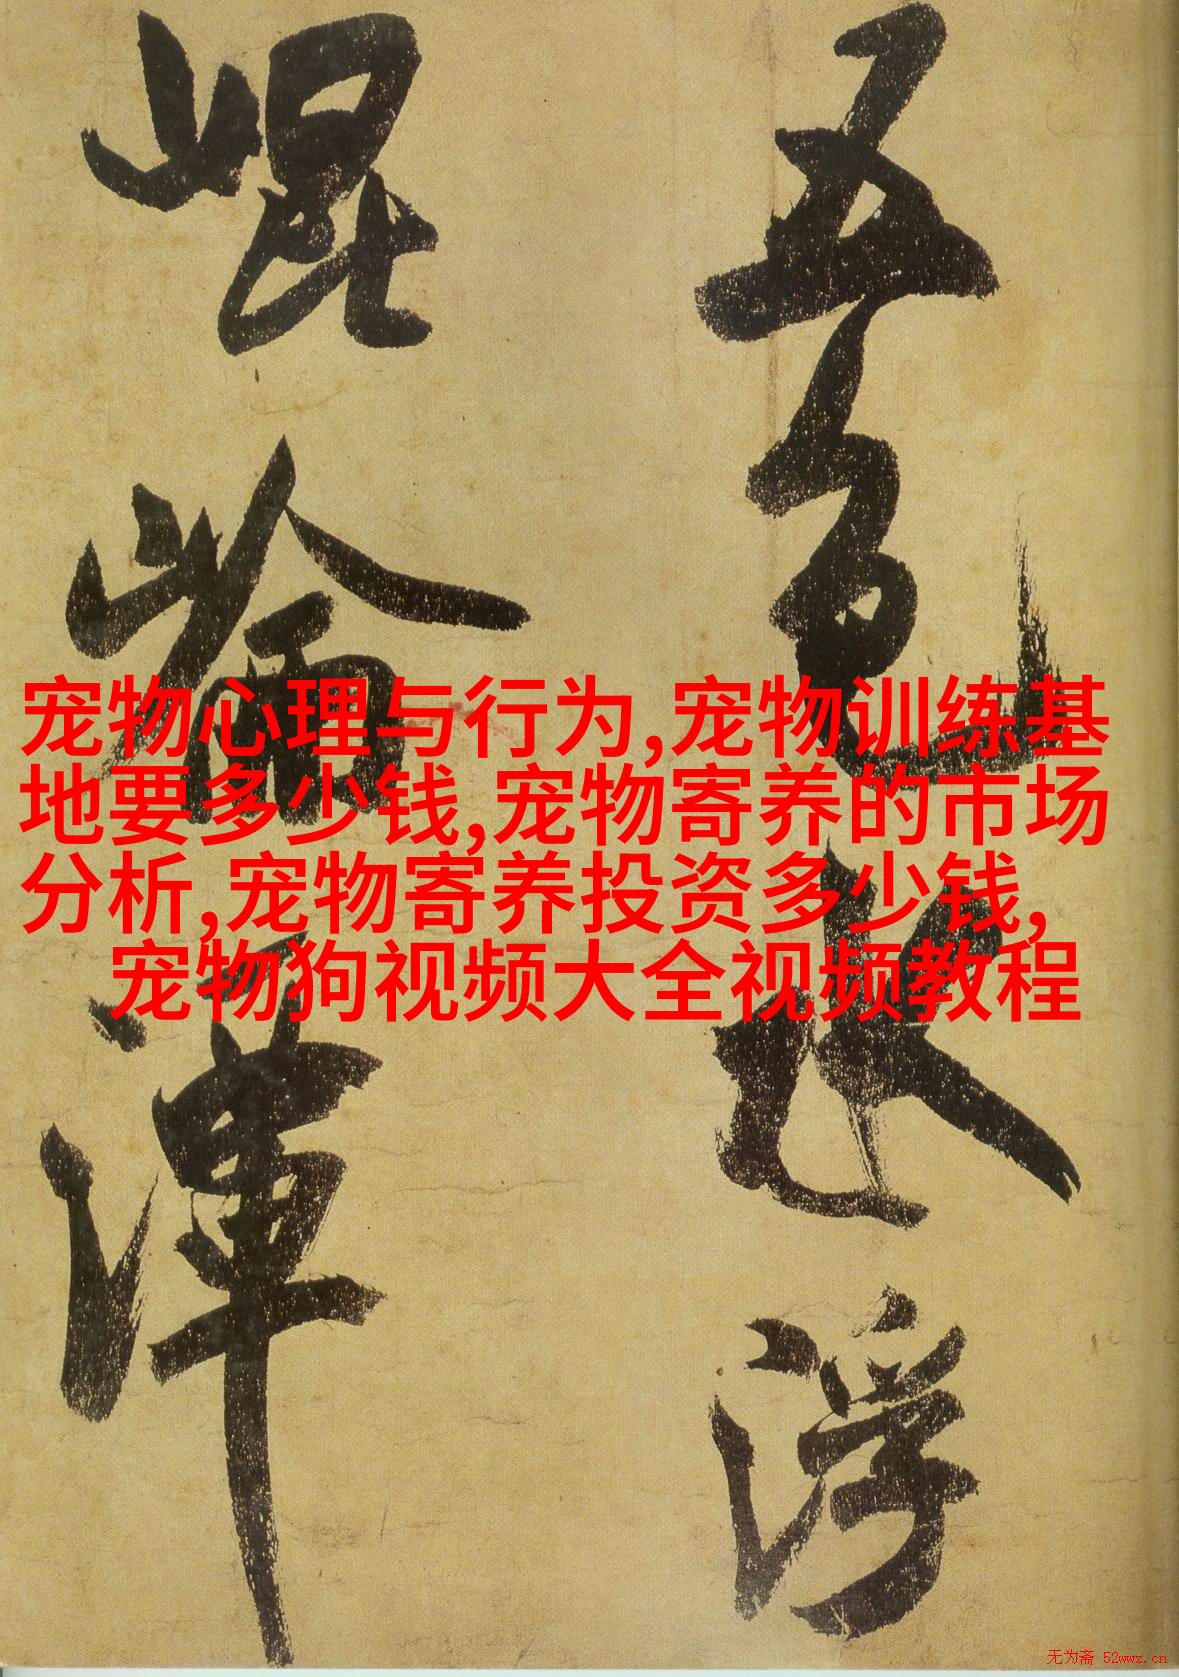 五色水浮
崐崘潭
宠物心理与行为,宠物训练基
地要多少钱,宠物寄养的市场
分析,宠物寄养投资多少钱,
宠物狗视频大全视频教程
无为斋 52wwz.cn